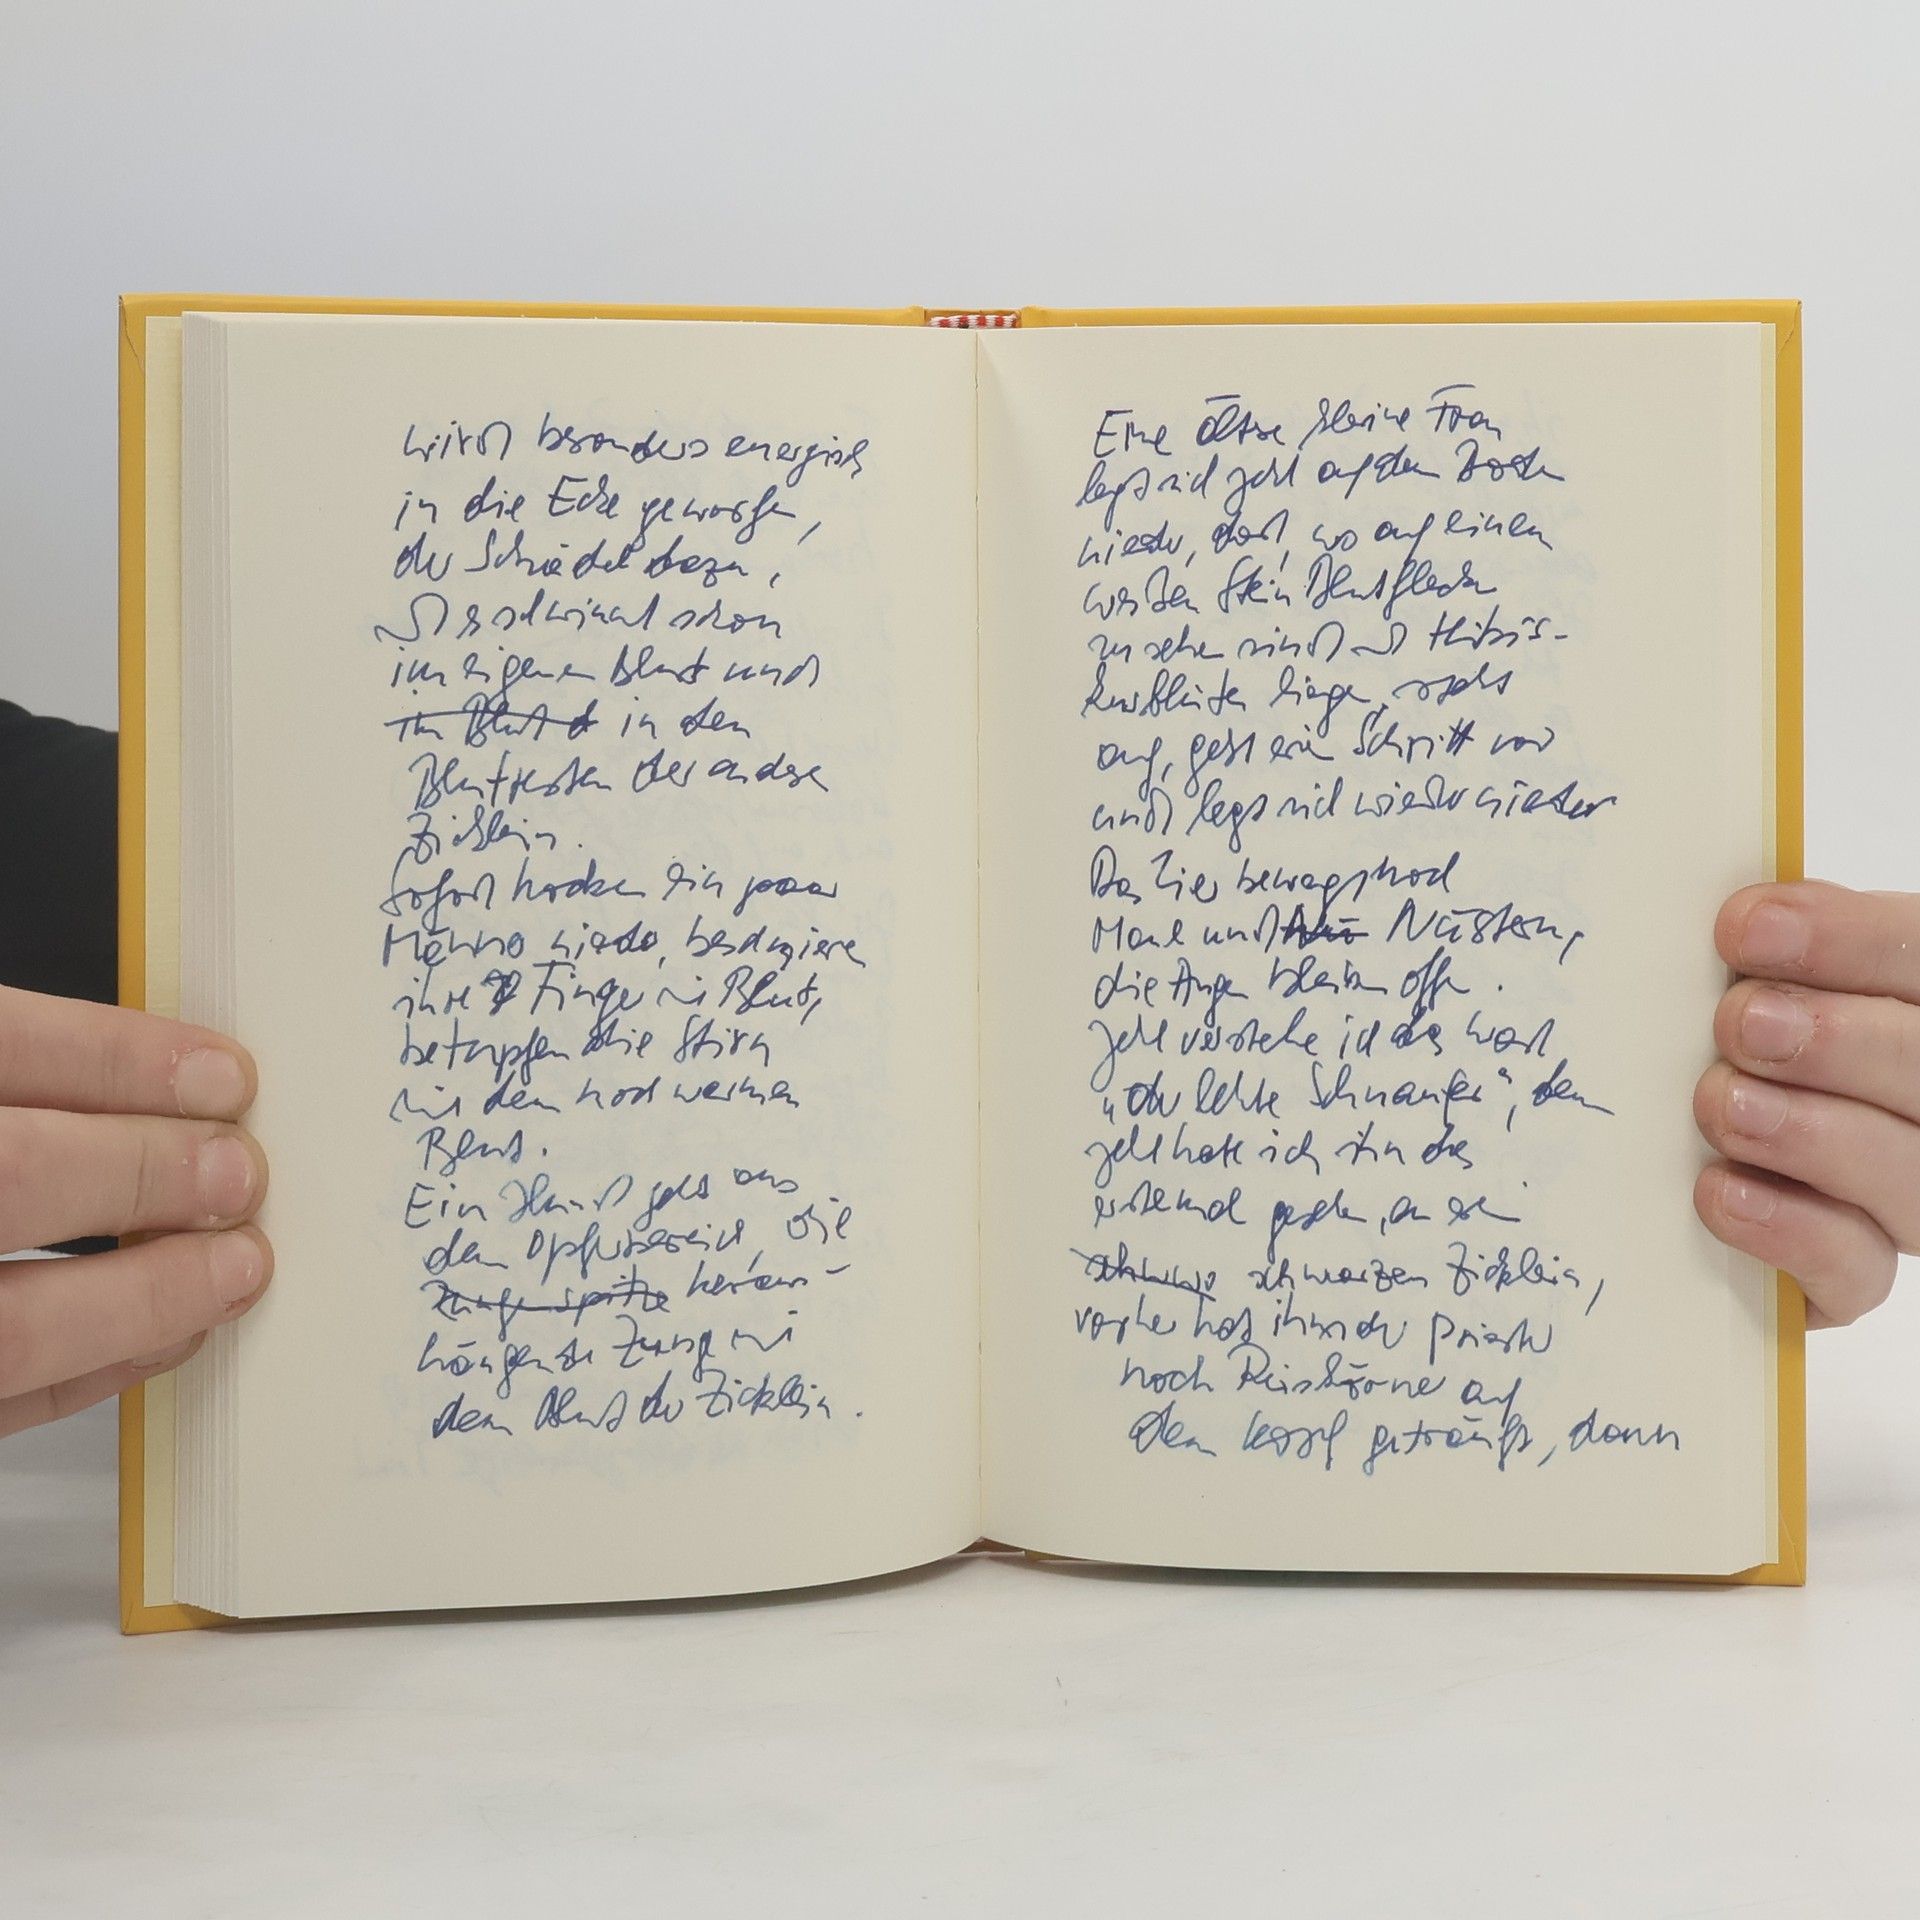 wird besonders energisch
in die Ecke geworfen,
der Schädel dazu,
und er schwimmt schon
im eigenen Blut und
im Blut d in den
Blutresten der andere
Zicklein.
Sofort hocken ein paar
Männer nieder, beschmieren
ihre Finger mit Blut,
betupfen die Stirn
mit dem noch warmen
Blut.
Ein Hund geht aus
dem Opferbereich, die
Zungenspitze heraus-
hängende Zunge mit
dem Blut der Zicklein.
Eine ältere kleine Frau
legt sich jetzt auf den Boden
nieder, dort, wo auf einem
weißen Stein Blutflecken
zu sehen sind und Hibis-
kusblüten liegen, steht
auf, geht ein Schritt vor
und legt sich wieder nieder
Das Tier bewegt noch
Maul und Nü Nüstern,
die Augen bleiben offen.
Jetzt verstehe ich das Wort
„der letzte Schnaufer“, denn
jetzt hatte ich ihn das
erstemal gesehen, an ein
schwarzen Zicklein,
vorher hat ihm der Priester
noch Reiskörner auf
den Kopf geträufelt, dann